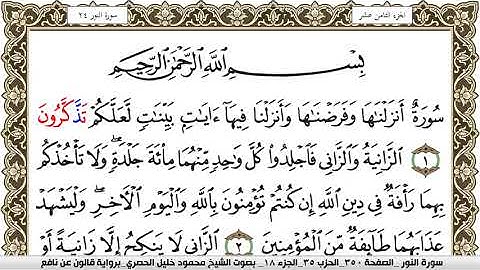 الجزء الثامن عشر
سورة النور ٢٤
بِسْمِ اللَّهِ الرَّحْمَٰنِ الرَّحِيمِ
سُورَةٌ أَنزَلْنَٰهَا وَفَرَضْنَٰهَا وَأَنزَلْنَا فِيهَآ ءَايَٰتِۭ بَيِّنَٰتٖ لَّعَلَّكُمْ تَذَّكَّرُونَ
١ الزَّانِيَةُ وَالزَّانِي فَاجْلِدُوا كُلَّ وَٰحِدٖ مِّنْهُمَا مِاْئَةَ جَلْدَةٖ وَلَا تَأْخُذْكُم
بِهِمَا رَأْفَةٌ فِي دِينِ اللَّهِ إِن كُنتُمْ تُؤْمِنُونَ بِاللَّهِ وَالْيَوْمِ الْأَخِرِ وَلْيَشْهَدْ
عَذَابَهُمَا طَآئِفَةٌ مِّنَ الْمُؤْمِنِينَ ٢ الزَّانِي لَا يَنكِحُ إِلَّا زَانِيَةً أَوْ
سورة النور _ الصفحة ٣٥٠_ الحزب ٣٥_ الجزء ١٨_ بصوت الشيخ محمود خليل الحصري_ برواية قالون عن نافع